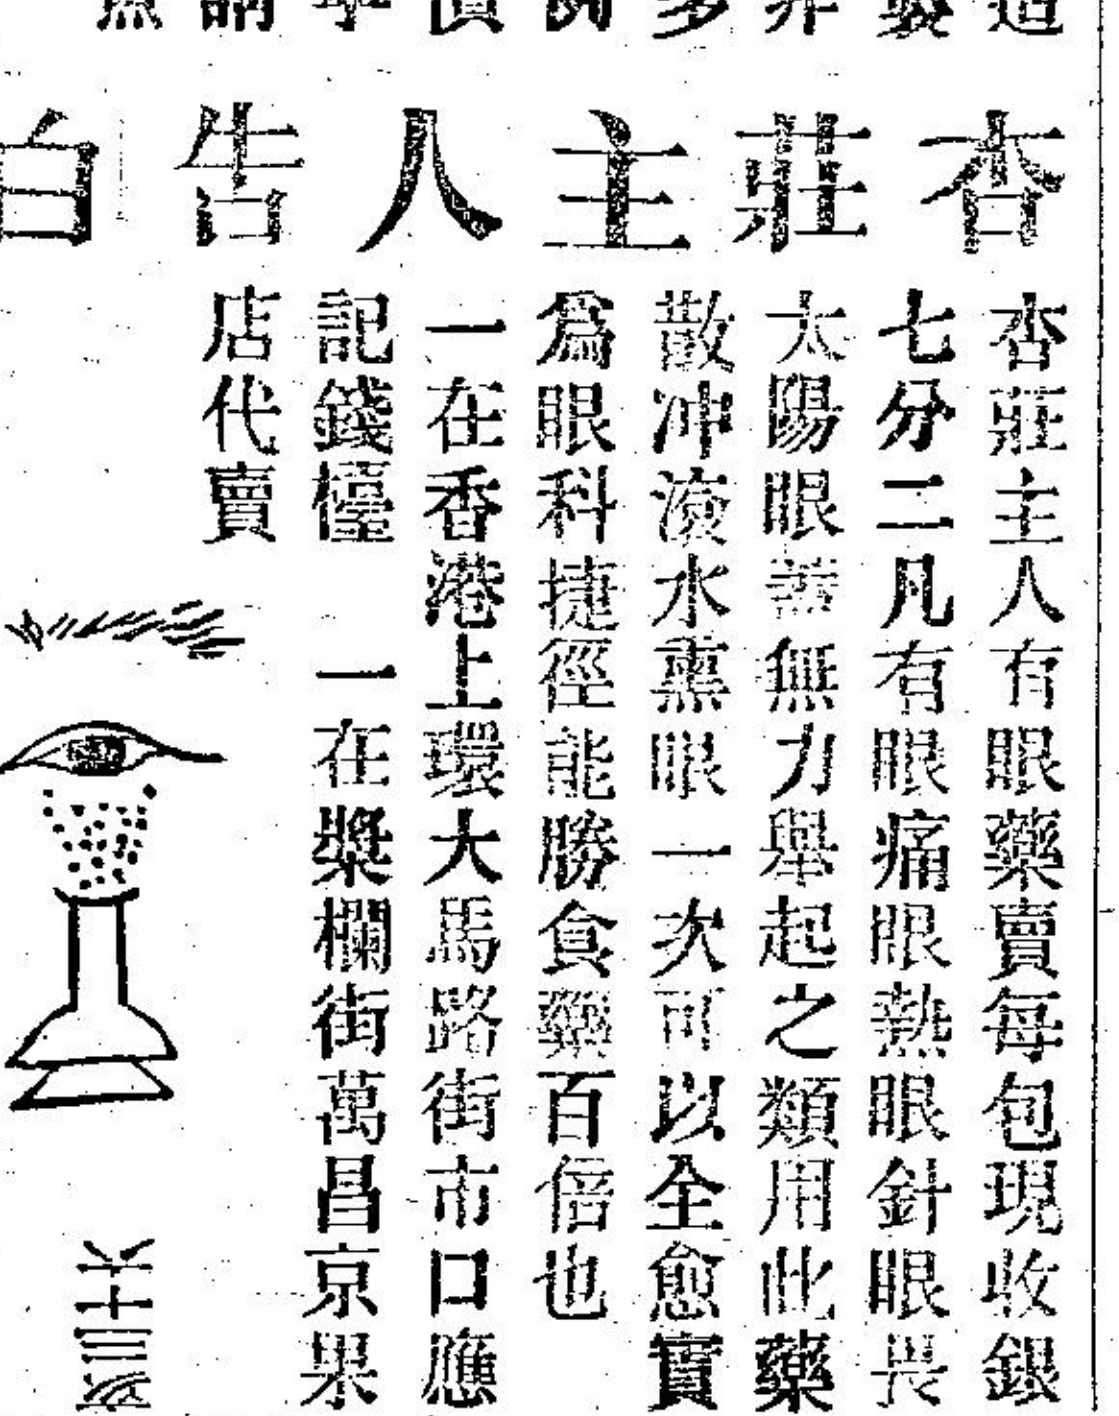 杏莊主人告白
杏莊主人有眼藥賣每包現收銀
七分二凡有眼痛眼熱眼針眼畏
太陽眼蓋無力舉起之類用此藥
散冲滾水熏眼一次可以全愈實
爲眼科捷徑能勝食藥百倍也
一在香港上環大馬路街市口應
記錢檯 一在槳欄街萬昌京果
店代賣
六十三